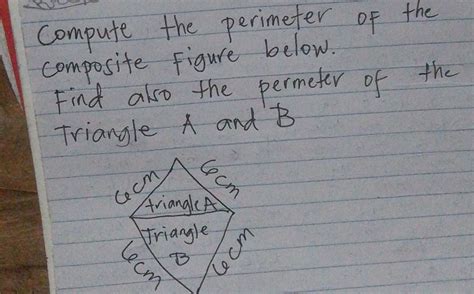 Compute the perimeter of the
composite Figure below.
Find also the permeter of the
Triangle A and B
6cm 6cm
triangle A
Triangle
B
6cm 6cm